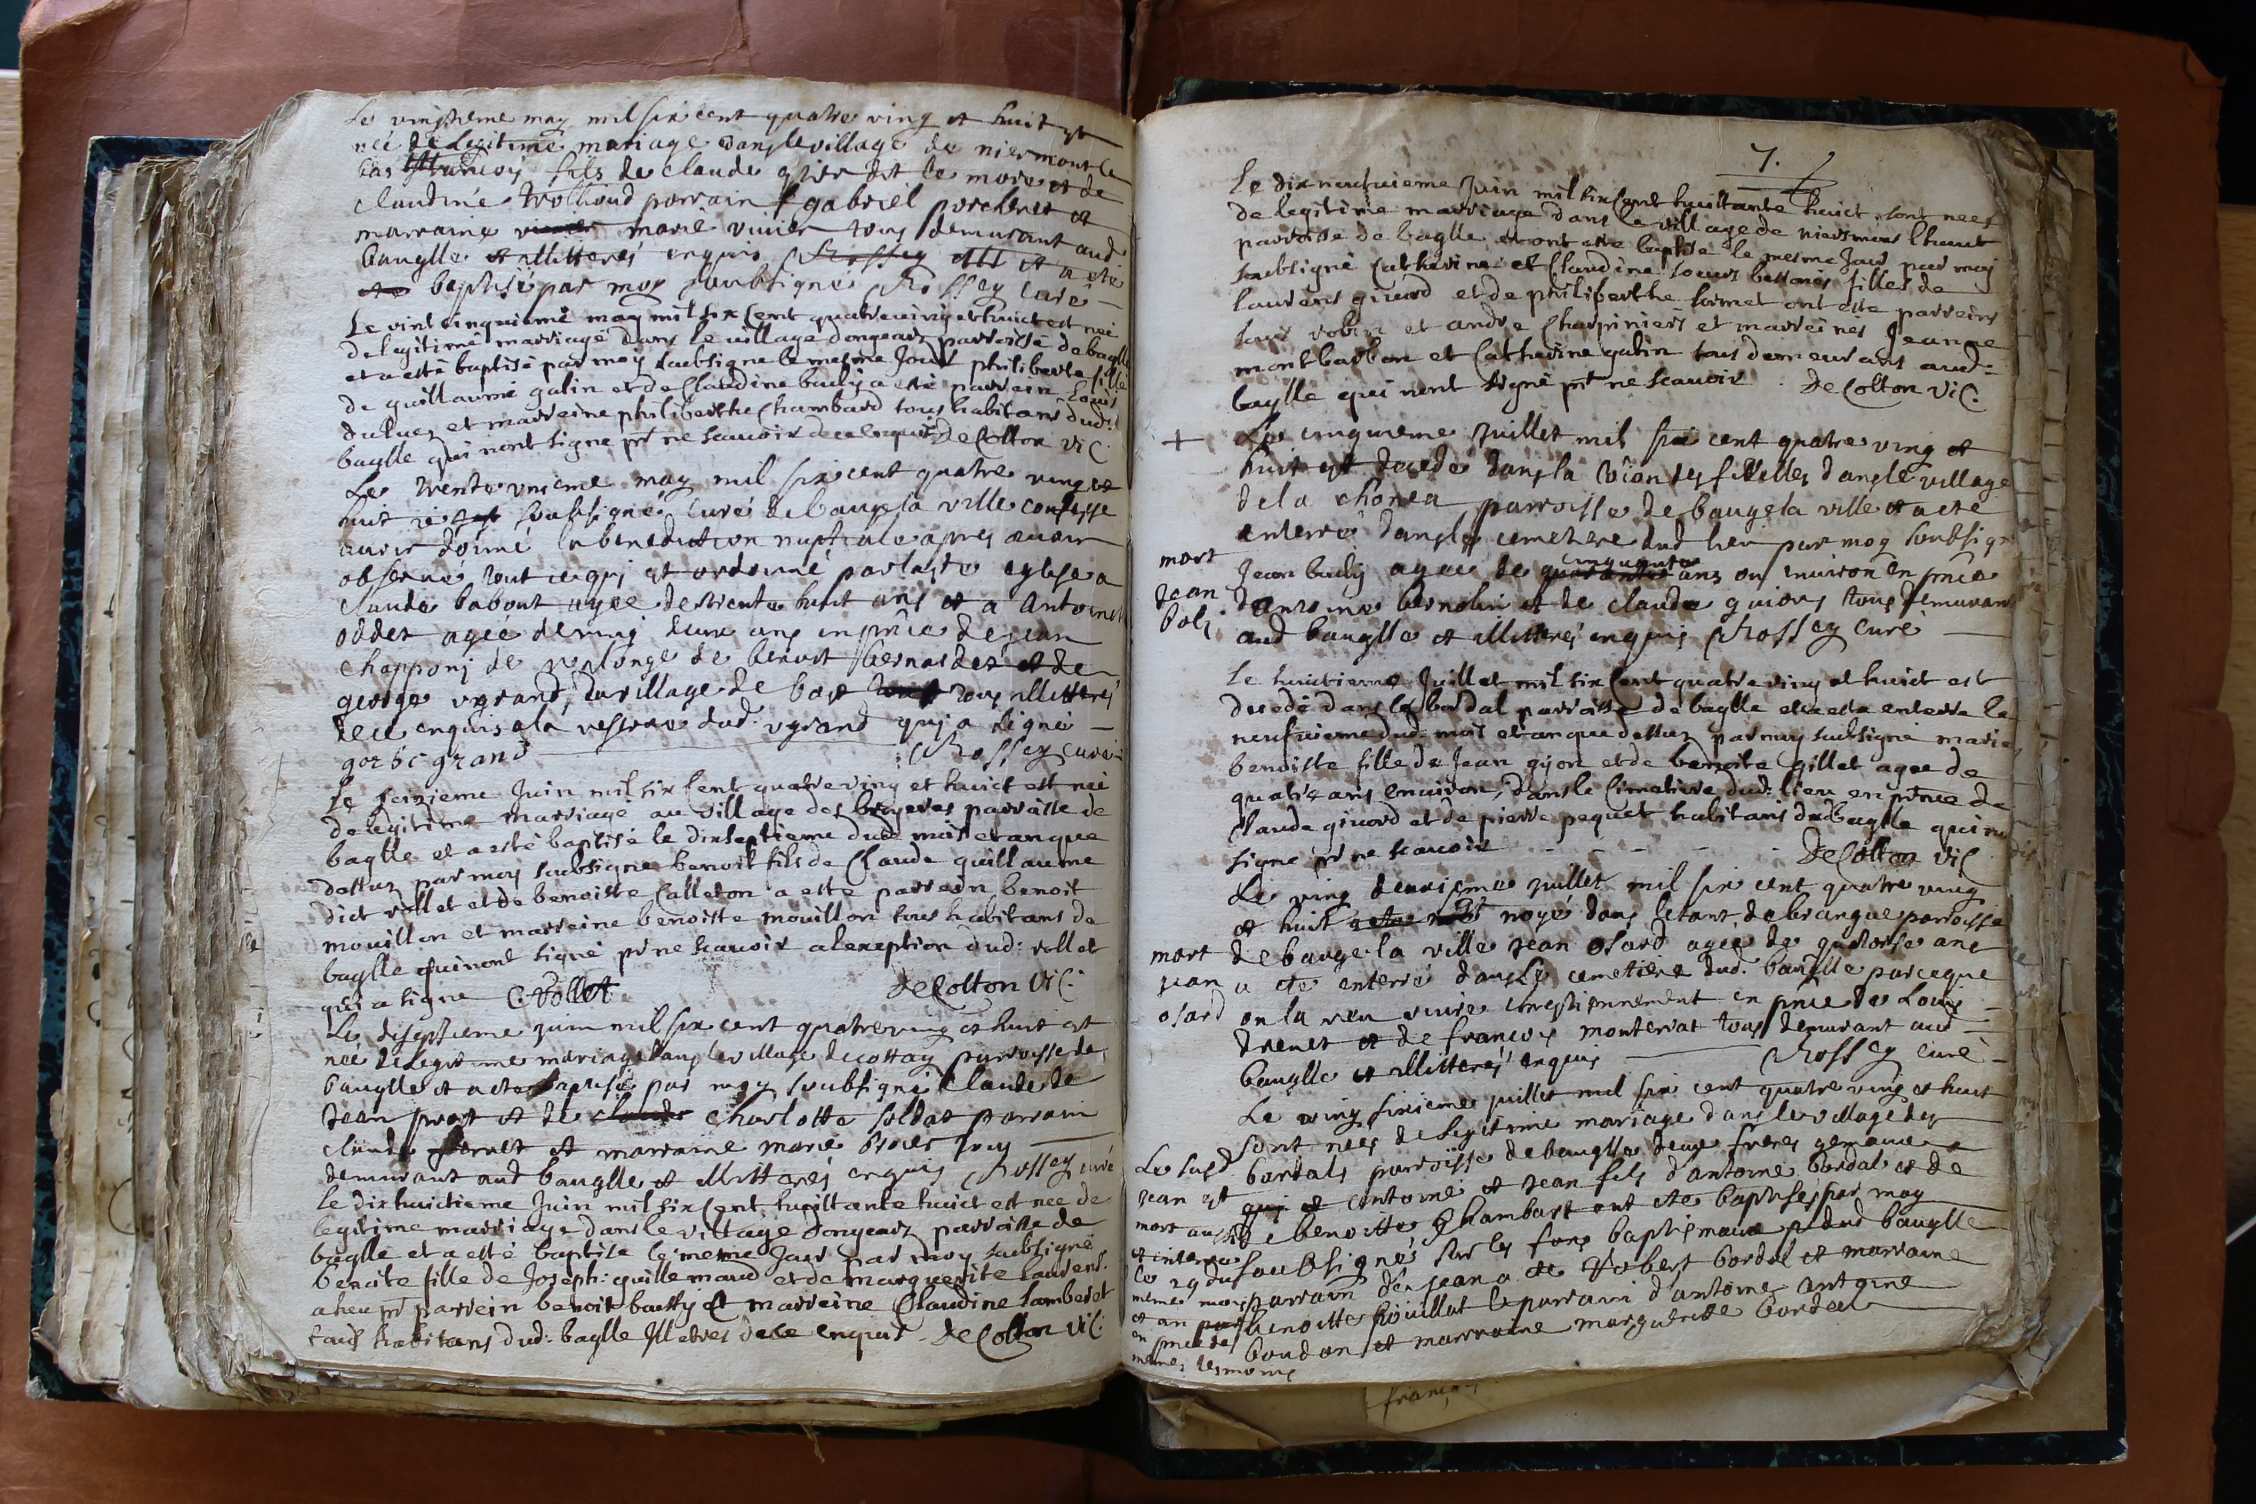 Le vingtieme may mil six cent quatre ving et huit est
né de legitime mariage dans le village de niermont le
bas françois fils de claude gvier dit le more et de
claudine trollioud parrain gabriel porcheret et
marraine marie vivier tous demurant aud
bauglle et illitterés enquis et a eté
baptisé par moy soubsigné Rossey curé
Le vint cinquieme may mil six cent quatre ving et huict est neé
de legitime marriage dans le village dongeard parroisse de baglle
et a esté baptisé par moy subsigné le mesme jour philiberte fille
de guillaume galin et de Claudine buly a esté parrain Louis
duluez et marreine philiberthe Chambard tous habitans dud:
baglle qui nont signe pr ne scauoir de ce enquis DeColton vic.
Le trente unieme may mil six cent quatre ving et
huit ie soubsigné curé de bauge la ville confesse
auoir donné la benediction nuptiale apres auoir
obserué tout ce qui est ordonné par laste eglise a
claude babout agee de trente huit ans et a Antoinett
oddet ageé de ving deux ans en pnce de jean
chapponj de replonge de benoit bernardet et de
george vgrand du village de bost tous illitterés
de ce enquis a la reserue dud: vgrand quj a signé
gorbe grand Rossey curé
Le seizieme Juin mil six Cent quatre ving et huict est né
de legitime marriage au village des bruyeres parroisse de
baglle et a esté baptisé le dixseptieme dud: mois et an que
dessus par moy subsigne benoit fils de Claude guillaume
dict vollet et de benoiste Calleton a esté parrain benoit
mouillon et marreine benoiste mouillon tous habitans de
baglle qui nont signé pr ne scauoir a lexeption dud: vollet
qui a signe C. vollet DeColton Vic.
Le diseptieme juin mil six cent quatre ving et huit est
né de legitime mariage dans le village de cottay parroisse de
bauglle et a eté baptisé par moy soubsigné Claude de
Jean prost et de charlotte soldat parrain
claude perret et marraine marie broier tous
demurant aud bauglle et illitterés enquis Rossey curé
Le dixhuictieme Juin mil six Cent huictante huict est nee de
legitime marriage dans le village dongeard parroisse de
baglle et a esté baptisé le meme Jour par moy subsigné
benoite fille de Joseph: guillemaud et de marguerite laurens.
a heu pr parrein benoit batty et marreine Claudine Lamberet
tous habitans dud: baglle Illetres de ce enquis. DeColton vic.
7.
Le dix neufuieme Juin mil six Cent huictante huict sont nees
de legitime marriage dans le village de niermont lhaut
parroisse de baglle et ont esté baptisé le mesme Jour par moy
subsigné Catherine et Claudine soeurs bessones filles de
laurens guerd et de philiberthe sornet ont esté parreins
Louis robin et andre Charpiniers et marreines Jeanne
montbarbon et Catherine galin tous demeurans aud:
baglle qui nont signé pr ne scauoir. DeColton vic.
+
Le cinquieme juillet mil six cent quatre ving et
huit est decedé dans la dans le village
de la chonea parroisse de bauge la ville et a eté
enterré dans le cemetiere dud lieu par moy soubsigne
Jean buly ageé de cinquante ans ou enuiron en pnce
dantoine bernolin et de claude guions tous demurans
aud bauglle et illitterés enquis Rossey curé
mort
Jean
boli
Le huictieme Juillet mil six Cent quatre ving et huict est
decedé dans le bordal parroisse de baglle et a esté enterré le
neufuieme dud: mois et an que dessus par moy subsigné marie
benoiste fille de Jean gyon et de benoite gillet agee de
quatre ans enuiron, dans le Cimetiere dud: lieu en pnce de
Claude giuord et de pierre pequet habitans de baglle qui nont
signé pr ne scauoir DeColton vic
Le ving deuxieme juillet mil six cent quatre ving
et huit est noyé dans letant de brangue parroisse
de bauge la ville Jean osard ageé de quatorse ans
a eté enterré dans le cemetiere dud: bauglle parceque
on la veu viure chrestiennement en pnce de Louis
drenet et de francois monterrat tous demurant aud
bauglle et illitterés enquis Rossey curé
mort
jean
osard
Le ving sixieme juillet mil six cent quatre ving et huit
sont nées de legitime mariage dans le village des
bordals parroisse de bauglle deux freres gemaux
Antoine et Jean fils d'antoine bordal et de
benoitte Chambart ont eté baptisés par moy
soubsigné sur les fons baptismaux dud bauglle
parrain de Jean a eté Robert bordal et marraine
benoitte Rouillat le parrain d'antoine antoine
boudon et marraine marguerite bordal
Le susd
Jean est
mort aussi
et enterré
le 29 du
meme mois
et an
en pnce de
memes tesmoins
franç